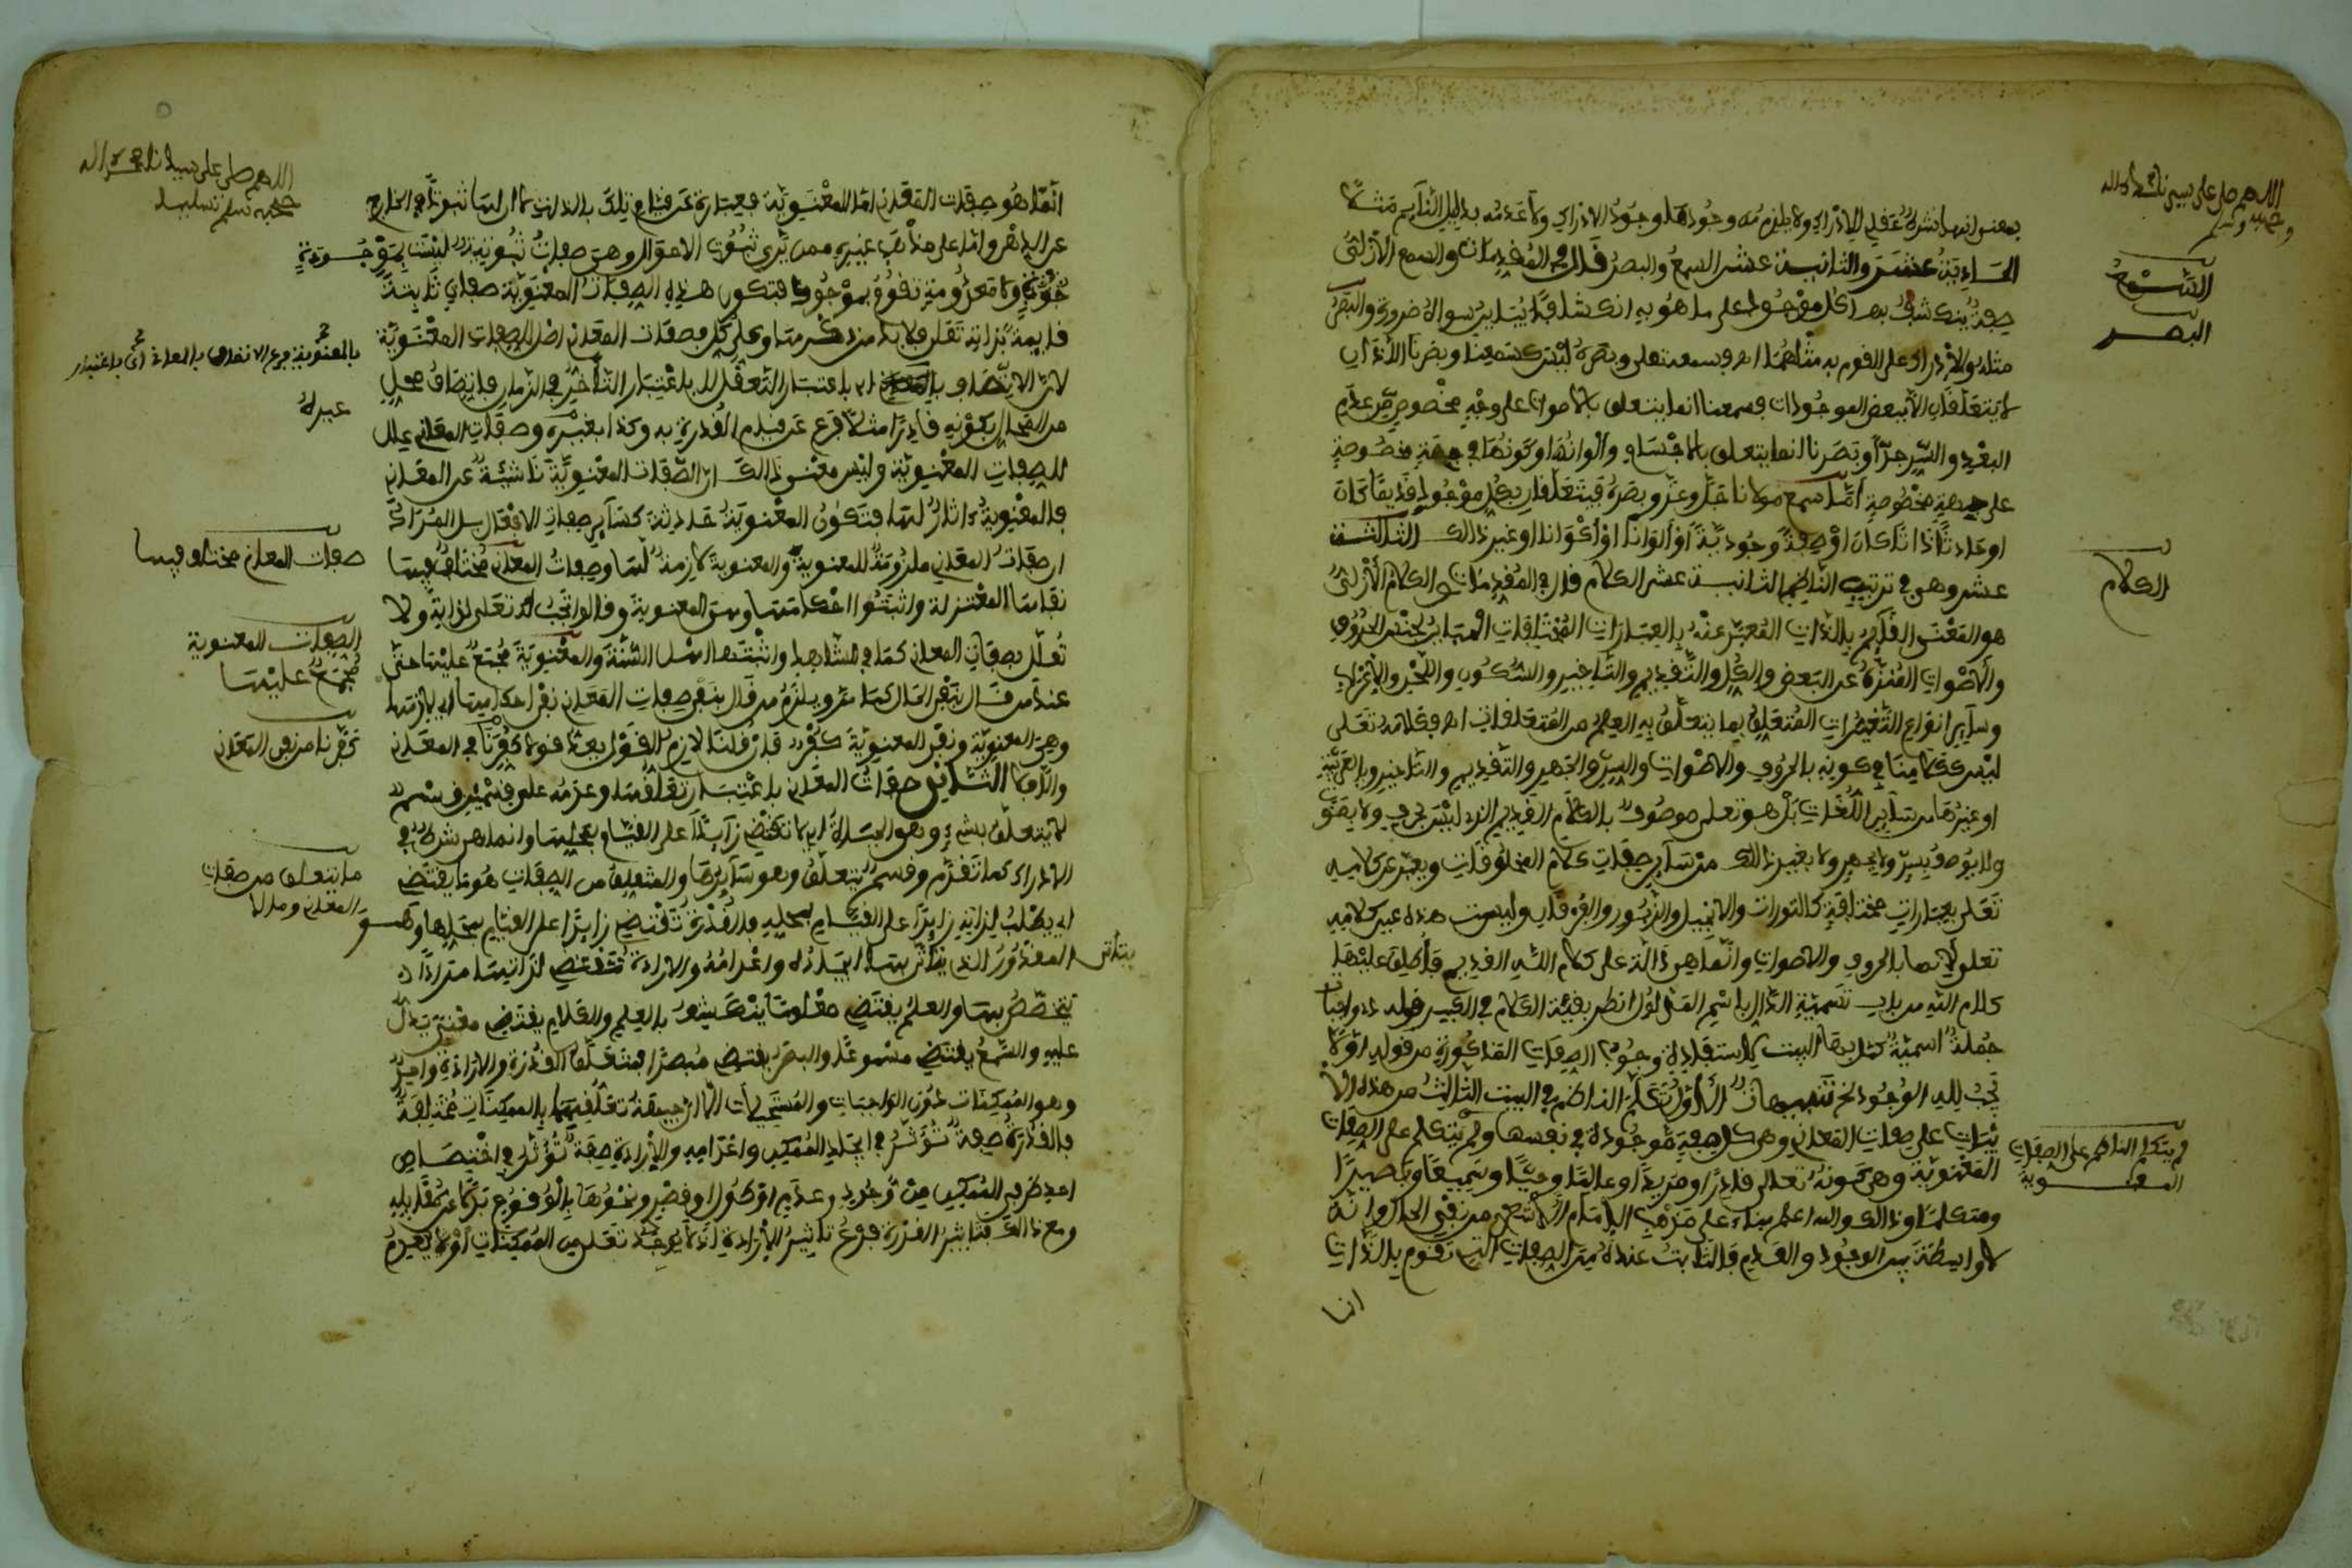 اللهم صل على سيدنا محمد واله
وصحبه وسلم
بمعنى انها شرط عقلي للادراك ولا يلزم من وجودها وجود الادراك ولا عدمه بدليل النايم مثلا
الحادية عشر والثانية عشر السمع والبصر قال في المقدمات والسمع الازلي
السمع
صفة ينكشف بها كل موجود على ما هو به انكشافا يباين سواه ضرورة والبصر
البصر
مثله والادراك على القول به مثلهما اه وسمعه تعلى وبصره ليس كسمعنا وبصرنا اللذان
لا يتعلقان الا ببعض الموجودات فسمعنا انما يتعلق بالاصوات على وجه مخصوص من عدم
البعد والسر جدا وبصرنا انما يتعلق بالاجسام والوانها وكونها في جهة مخصوصة
على صفة مخصوصة اما سمع مولانا جل وعز وبصره فيتعلقان بكل موجود قديما كان
او حادثا ذاتا كان او صفة وجودية او الوانا او اكوانا او غير ذالك الثالثة
عشر وهي في ترتيب الناظم الثانية عشر الكلام قال في المقدمات والكلام الازلي
الكلام
هو المعنى القايم بالذات المعبر عنه بالعبارات المختلفات المباين لجنس الحروف
والاصوات المنزه عن البعض والكل والتقديم والتاخير والسكوت واللحن والاعراب
وساير انواع التغيرات المتعلق بما يتعلق به العلم من المتعلقات اه وكلامه تعلى
ليس ككلامنا في كونه بالحروف والاصوات والسر والجهر والتقديم والتاخير وبالعربية
او غيرها من ساير اللغات بل هو تعلى موصوف بالكلام القديم الذي ليس بحرف ولا بصوت
ولا يوصف بسر ولا بجهر ولا بغير ذالك من ساير صفات كلام المخلوقات ويعبر عن كلامه
تعلى بعبارات مختلفة كالتورات والانجيل والزبور والفرقان وليست هذه عين كلامه
تعلى لانها بالحروف والاصوات وانما هي دالة على كلام الله القديم فاطلق عليها
كلام الله من باب تسمية الدال باسم المدلول انظر بقية الكلام في الكبير قوله ذي واجبات
جملة اسمية كمل بها البيت لاستفادة وجوب الصفات المذكورة من قوله اولا
يجب لله الوجود الخ تنبيهان الاول تكلم الناظم في البيت الثالث من هذه الا
بيات على صفات المعاني وهي كل صفة موجودة في نفسها ولم يتكلم على الصفات
لم يتكلم الناظم على الصفات
المعنوية
المعنوية وهي كونه تعالى قادرا ومريدا وعالما وحيا وسميعا وبصيرا
ومتكلما وذالك والله اعلم بناء على مذهب الامام الاشعري من نفي الحال وانه
لا واسطة بين الوجود والعدم فالثابت عنده من الصفات التي تقوم بالذات
انما
اللهم صل على سيدنا محمد واله
وصحبه وسلم تسليما
انما هو صفات المعاني اما المعنوية فعبارة عن قيام تلك بالذات لا ان لها ثبوتا في الخارج
عن الذهن واما على مذهب غيره ممن يرى ثبوت الاحوال وهي صفات ثبوتية ليست بموجودة
ولا معدومة تقوم بموجود فتكون هذه الصفات المعنوية صفات ثابتة
قايمة بذاته تعلى فلا بد من ذكرها وعلى كل فصفات المعاني اصل للصفات المعنوية
فالمعنوية فرع الاتصاف بالمعاني اي باعتبار
لان الاتصاف اه باعتبار التعقل لا باعتبار التاخر في الزمان فاتصاف محل
من المحال بكونه قادرا مثلا فرع عن قيام القدرة به وكذا بغيره وصفات المعاني علل
للصفات المعنوية وليس معنى ذالك ان الصفات المعنوية ناشئة عن المعاني
فالمعنوية اثار لها فتكون المعنوية حادثة كساير صفات الافعال بل المراد
ان صفات المعاني ملزومة للمعنوية والمعنوية لازمة لها وصفات المعاني مختلف فيها
صفات المعاني مختلف فيها
نفاها المعتزلة واثبتوا احكامها وهي المعنوية وقالوا تجب له تعلى لذاته ولا
الصفات المعنوية
مجمع عليها
تعلل بصفات المعاني كما في الشاهد واثبتها اهل السنة والمعنوية مجمع عليها حتى
عند من قال بنفي الحال كما مر ويلزم من قال بنفي صفات المعاني نفي احكامها اي لازمها
وهي المعنوية ونفي المعنوية كفر قلت لازم القول
كفر نا من نفى المعاني
والا فلا الثاني صفات المعاني باعتبار تعلقها وعدمه على قسمين قسم
لا يتعلق بشيء وهو الحياة اي لا تقتضي زايدا على القيام بمحلها وانما هي شرط في
الادراك كما تقدم وقسم يتعلق وهو سايرها والمتعلق من الصفات هو ما يقتضي
ما يتعلق من صفات
المعاني وما لا
اي يطلب لذاته زايدا على القيام بمحله فالقدرة تقتضي زايدا على القيام بمحلها وهو
المقدور الذي يتاتى بها ايجاده واعدامه والارادة تقتضي لذاتها مرادا
يتخصص بها والعلم يقتضي معلوما ينكشف بالعلم والكلام يقتضي معنى يدل
عليه والسمع يقتضي مسموعا والبصر يقتضي مبصرا فمتعلق القدرة والارادة واحد
وهو الممكنات دون الواجبات والمستحيلات الا ان جهة تعلقهما بالممكنات مختلفة
فالقدرة صفة تؤثر في ايجاد الممكن واعدامه والارادة صفة تؤثر في اختصاص
احد طرفي الممكن من وجود وعدم او طول وقصر ونحوها بالوقوع بدلا عن مقابله
ومع ذالك فتاثير القدرة فرع تاثير الارادة اذ لا يوجد تعلى من الممكنات او لا يعدم